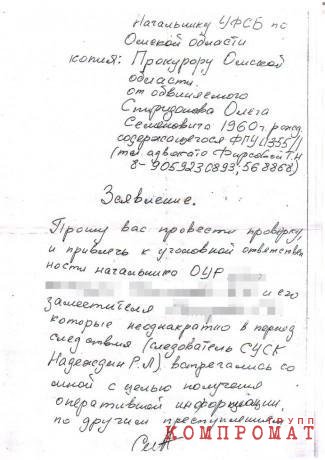 Начальнику УФСБ по
Омской области
копия: Прокурору Омской
области
от обвиняемого
Олега
Семеновича 1960г. рожд.
содержащегося
(тел. адвоката Т.Н
8-9059230893, 568868)
Заявление.
Прошу вас провести проверку,
и привлечь к уголовной ответствен
ности начальника ОУР
и его
заместителя
которые неоднократно в период
следствия (следователь СУСК
Надеждин Р.Л) встречались со
мной с целью получения
оперативной информации,
по другим преступлениям
групп
КОМПРОМАТ